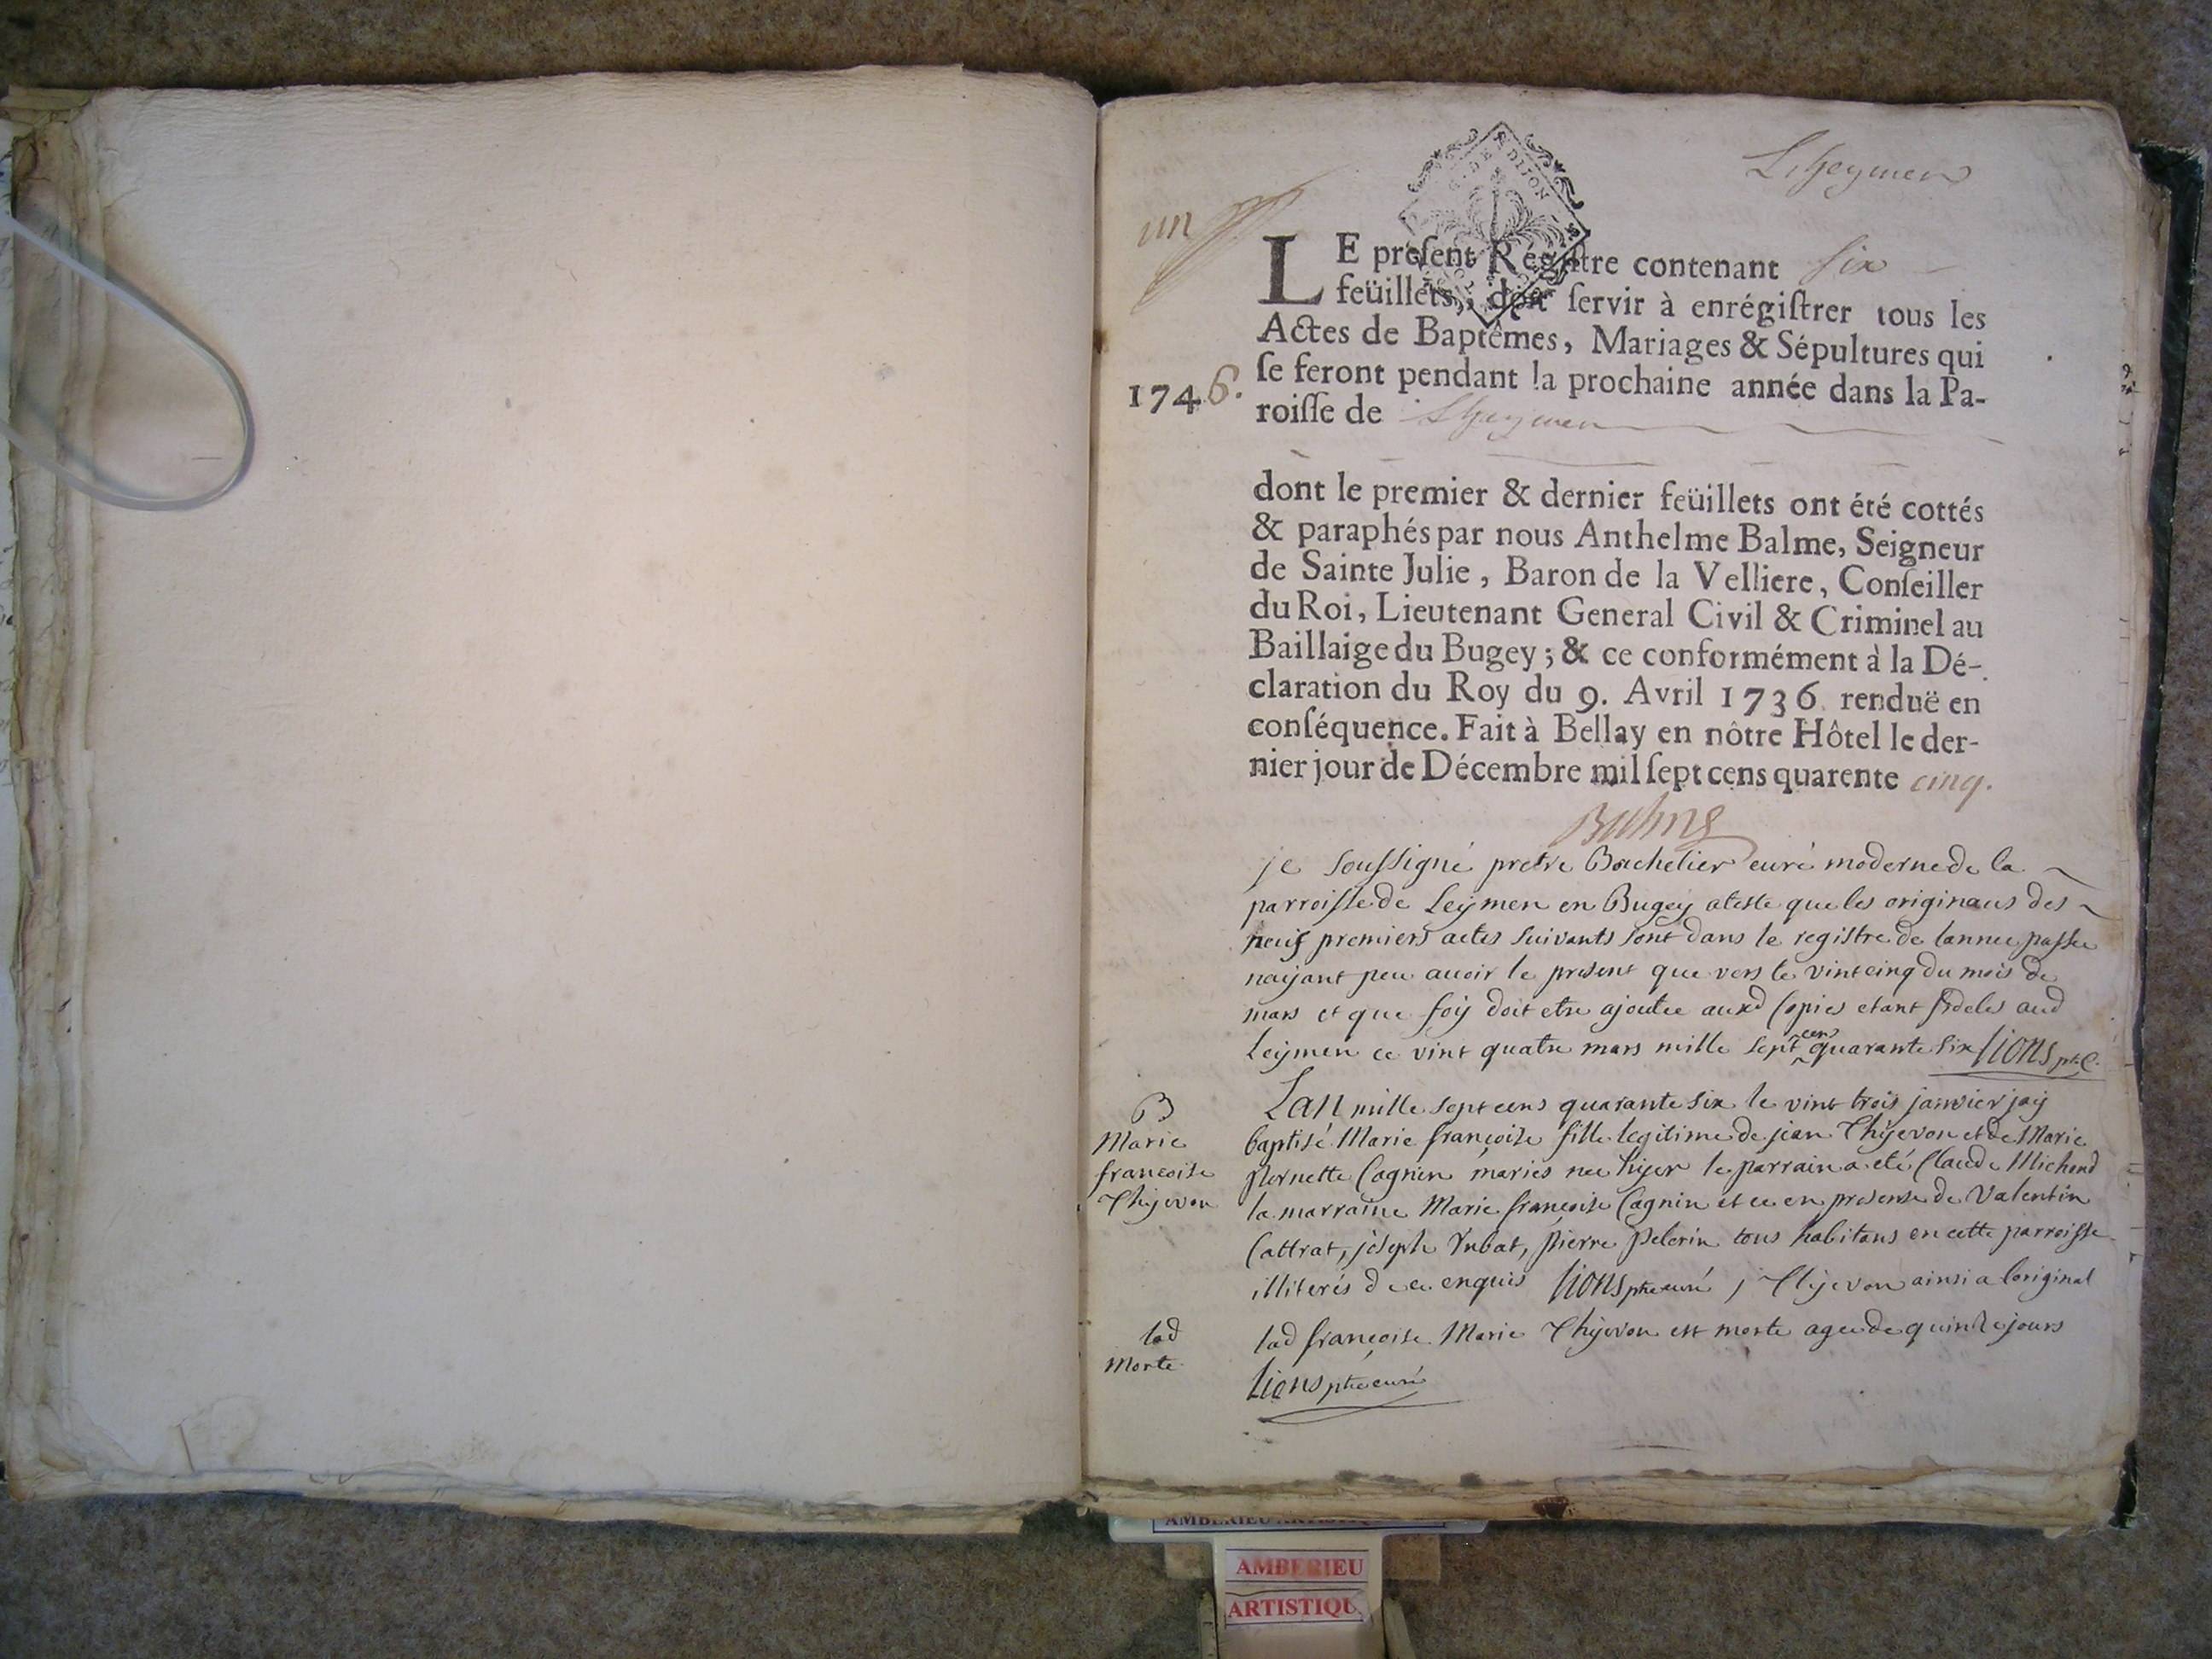 Lheymen
un
G. DE DIJON
LE preſent Régiſtre contenant six
feüillets, doit ſervir à enrégiſtrer tous les
Actes de Baptêmes, Mariages & Sépultures qui
ſe feront pendant la prochaine année dans la Pa-
1746.
roiſſe de Lheymen
dont le premier & dernier feüillets ont été cottés
& paraphés par nous Anthelme Balme, Seigneur
de Sainte Julie, Baron de la Velliere, Conſeiller
du Roi, Lieutenant General Civil & Criminel au
Baillaige du Bugey; & ce conformément à la Dé-
claration du Roy du 9. Avril 1736 renduë en
conſéquence. Fait à Bellay en nôtre Hôtel le der-
nier jour de Décembre mil ſept cens quarente cinq.
Balme
je soussigné pretre Bachelier curé moderne de la
parroisse de Leymen en Bugey ateste que les originaus des
neuf premiers actes suivants sont dans le registre de lannee passee
nayant peu avoir le present que vers le vintcinq du mois de
mars et que foy doit etre ajoutee auxd copies etant fideles aud
Leymen ce vint quatre mars mille sept cens quarante six Lions ptre C.
B
Marie
francoise
Thyevon
Lan mille sept cens quarante six le vint trois janvier jay
baptisé Marie françoise fille legitime de jean Thyevon et de Marie
pernette Cagnin mariés nee hyer le parrain a eté Claude Michoud
la marraine Marie françoise Cagnin et ce en presense de Valentin
Cattrat, joseph Vubat, pierre pelerin tous habitans en cette parroisse
illiterés de ce enquis Lions ptre curé, j Thyevon ainsi a loriginal
lad
Morte
lad françoise Marie Thyevon est morte agee de quinze jours
Lions ptre curé
AMBERIEU
AMBERIEU
ARTISTIQU